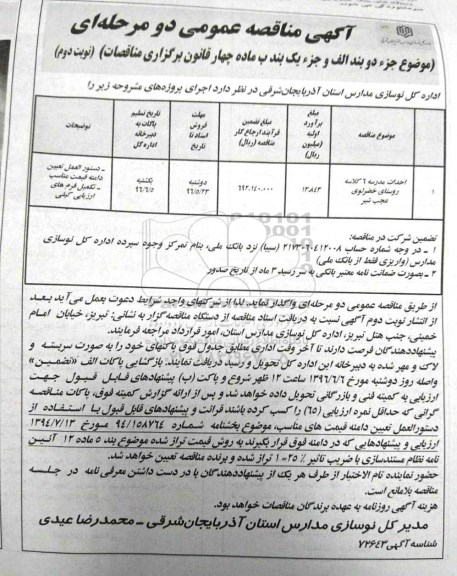 آگهی مناقصه عمومی دو مرحله‌ای
(موضوع جزء دو بند الف و جزء یک بند ب ماده چهار قانون برگزاری مناقصات) (نوبت دوم)
اداره کل نوسازی مدارس استان آذربایجان‌شرقی در نظر دارد اجرای پروژه‌های مشروحه زیر را
موضوع مناقصه
مبلغ برآورد اولیه (میلیون ریال)
مبلغ تضمین فرآیند ارجاع کار مناقصه (ریال)
مهلت فروش اسناد تا تاریخ
تاریخ تسلیم پاکات به دبیرخانه اداره کل
توضیحات
۱
احداث مدرسه ۶ کلاسه روستای خضرلوی عجب شیر
۱۳۸۴۳
۶۹۲.۱۴۰.۰۰۰
دوشنبه ۹۶/۵/۲۳
یکشنبه ۹۶/۶/۵
- دستور العمل تعیین دامنه قیمت مناسب
- تکمیل فرم های ارزیابی کیفی
تضمین شرکت در مناقصه:
۱ - در وجه شماره حساب ۲۱۷۳۰۶۰۴۱۲۰۰۸ (سیبا) نزد بانک ملی، بنام تمرکز وجوه سپرده اداره کل نوسازی
مدارس (واریزی فقط از بانک ملی)
۲ - بصورت ضمانت نامه معتبر بانکی به سر رسید ۳ ماه از تاریخ صدور
از طریق مناقصه عمومی دو مرحله‌ای واگذار نماید. لذا از شرکتهای واجد شرایط دعوت بعمل می آید بعد
از انتشار نوبت دوم آگهی نسبت به دریافت اسناد مناقصه از دستگاه مناقصه گزار به نشانی: تبریز، خیابان امام
خمینی، جنب هتل تبریز، اداره کل نوسازی مدارس استان، امور قرارداد مراجعه فرمایند.
پیشنهاددهندگان فرصت دارند تا آخر وقت اداری مطابق جدول فوق پاکتهای خود را به صورت سربسته و
لاک و مهر شده به دبیرخانه این اداره کل تحویل و رسید دریافت نمایند. بازگشایی پاکات الف «تضمین»
واصله روز دوشنبه مورخ ۱۳۹۶/۶/۶ ساعت ۱۲ ظهر شروع و پاکت (ب) پیشنهادهای قابل قبول جهت
ارزیابی به کمیته فنی و بازرگانی تحویل داده خواهد شد و پس از ارائه گزارش کمیته فوق، پاکات مناقصه
گرانی که حداقل نمره ارزیابی (۶۵) را کسب کرده باشند قرائت و پیشنهادهای قابل قبول با استفاده از
دستورالعمل تعیین دامنه قیمت های مناسب، موضوع بخشنامه شماره ۹۴/۱۵۸۷۶۴ مورخ ۱۳۹۴/۷/۱۳
ارزیابی و پیشنهادهایی که در دامنه فوق قرار بگیرند به روش قیمت تراز شده موضوع بند ۵ ماده ۱۲ آئین
نامه نظام مستندسازی با ضریب تاثیر ٪۲۵=i تراز شده و برنده مناقصه تعیین خواهد شد.
حضور نماینده تام الاختیار از طرف هر یک از پیشنهاددهندگان با در دست داشتن معرفی نامه در جلسه
مناقصه بلامانع است.
هزینه آگهی روزنامه به عهده برندگان مناقصات خواهد بود.
مدیر کل نوسازی مدارس استان آذربایجان‌شرقی - محمدرضا عیدی
شناسه آگهی ۷۲۶۴۳